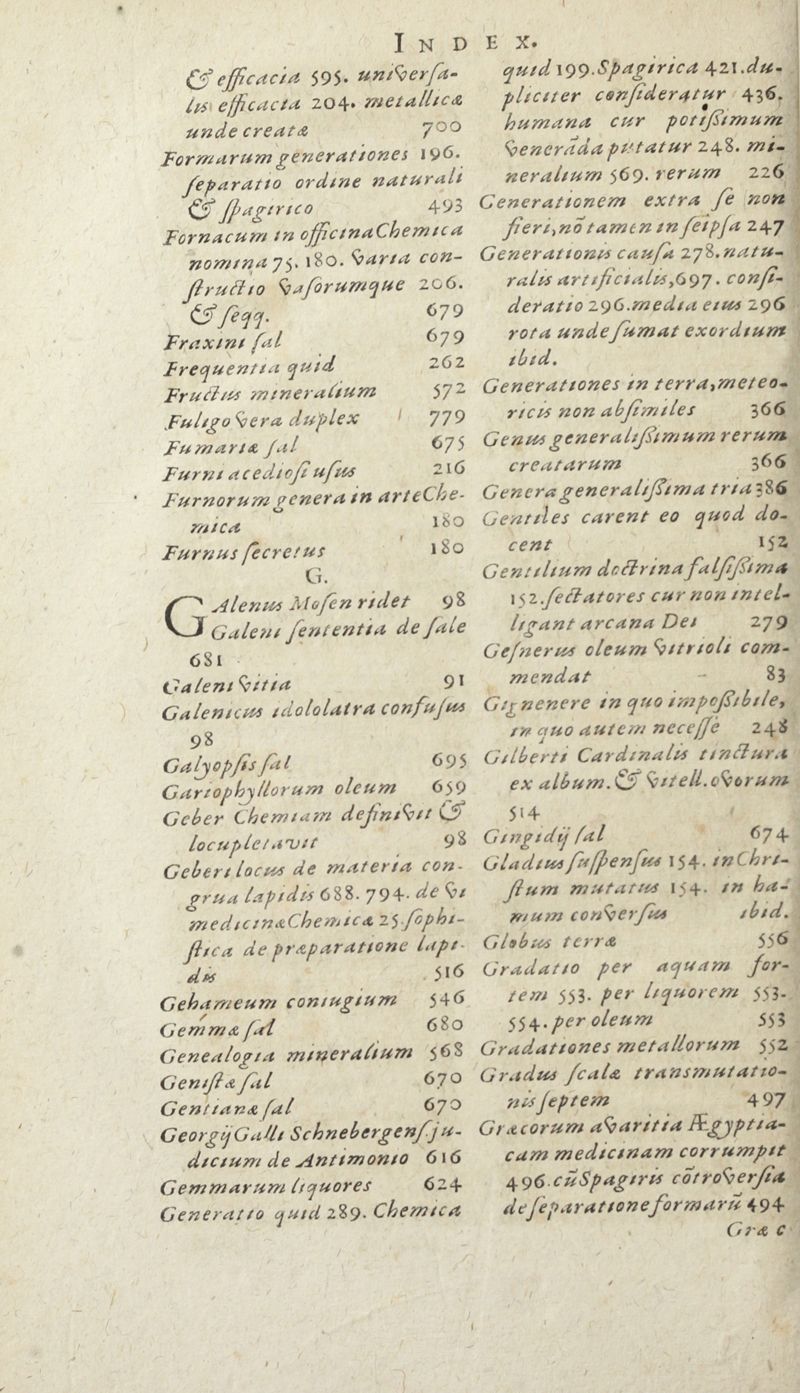 INDEX.
& efficacia 595. univerſa-
lis efficacia 204. metallicæ
unde creatæ 700
Formarum generationes 196.
ſeparatio ordine naturali
& ſpagirico 493
Fornacum in officina Chemica
nomina 75. 180. varia con-
ſtructio vaſorumque 206.
& ſeqq. 679
Fraxini ſal 679
Frequentia quid 262
Fructus mineralium 572
Fuligo vera duplex 779
Fumariæ ſal 675
Furni acedioſi uſus 216
Furnorum genera in arte Che-
mica 180
Furnus ſecretus 180
G.
GAlenus Moſen ridet 98
Galeni ſententia de ſale
681
Galeni vitia 91
Galenicus idololatra confuſus
98
Galyopſis ſal 695
Gariophyllorum oleum 659
Geber Chemiam definivit &
locupletavit 98
Geberi locus de materia con-
grua lapidis 688. 794. de vi
medicinæ Chemicæ 25. ſophi-
ſtica de præparatione lapi-
dis 516
Gehameum coniugium 546
Gemmæ ſal 680
Genealogia mineralium 568
Geniſtæ ſal 670
Gentianæ ſal 670
Georgij Galli Schnebergenſ. ju-
dicium de Antimonio 616
Gemmarum liquores 624
Generatio quid 289. Chemica
quid 199. Spagirica 421. du-
pliciter conſideratur 436.
humana cur potiſſimum
venerāda putatur 248. mi-
neralium 569. rerum 226
Generationem extra ſe non
fieri, nō tamen in ſeipſa 247
Generationis cauſa 278. natu-
ralis artificialis, 697. conſi-
deratio 296. media eius 296
rota unde ſumat exordium
ibid.
Generationes in terra, meteo-
ricis non abſimiles 366
Genus generaliſſimum rerum
creatarum 366
Genera generaliſſima tria 386
Gentiles carent eo quod do-
cent 152
Gentilium doctrina falſiſſima
152. ſectatores cur non intel-
ligant arcana Dei 279
Geſnerus oleum vitrioli com-
mendat 83
Gignenere in quo impoſſibile,
in quo autem neceſſe 248
Gilberti Cardinalis tinctura
ex album. & vitell. ovorum
514
Gingidij ſal 674
Gladius ſuſpenſus 154. in Chri-
ſtum mutatus 154. in ha-
mum converſus ibid.
Globus terræ 556
Gradatio per aquam for-
tem 553. per liquorem 553.
554. per oleum 553
Gradationes metallorum 552
Gradus ſcalæ transmutatio-
nis ſeptem 497
Græcorum avaritia Ægyptia-
cam medicinam corrumpit
496. cū Spagiris cōtroverſia
de ſeparatione formarū 494
Græ c